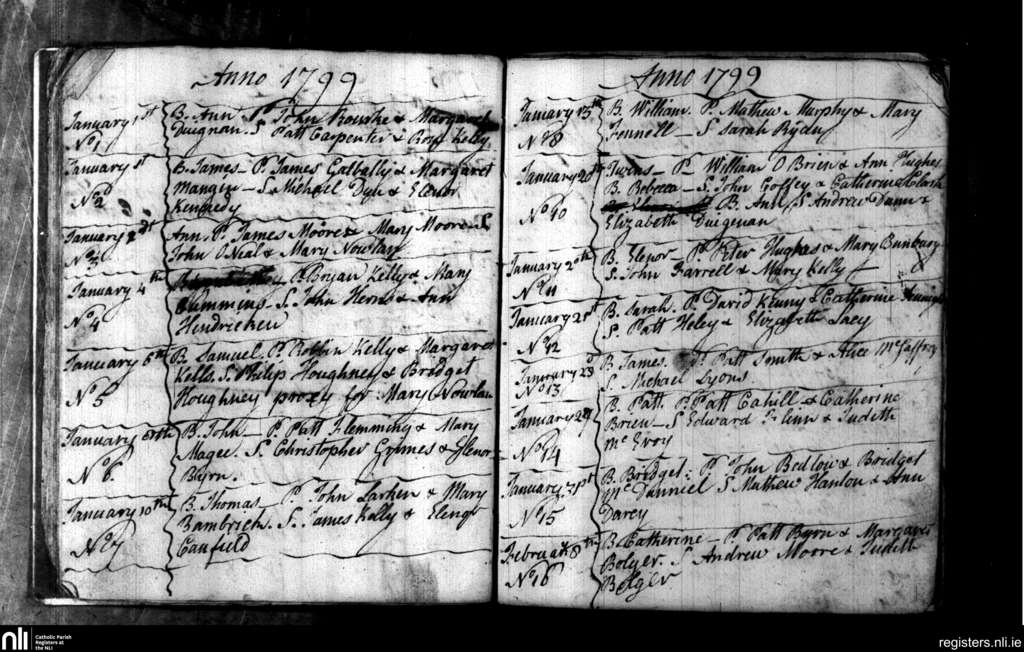 Anno 1799
January 1st
No 1
B. Ann S. John Rourke & Margaret
Duignan. S Patt Carpenter & Rose Kelly
January 1st
No 2
B. James – P. James Galbally & Margaret
Mangin – S. Michael Dyle & Elenor
Kennedy
January 2d
No 3
Ann. P. James Moore & Mary Moore S.
John O'Neal & Mary Nowlan
January 4th
No 4
P. Bryan Kelly & Mary
Clemmens – S. John Herns & Ann
Hendricken
January 6th
No 5
B. Samuel. P. Robbin Kelly & Margaret
Kells. S. Philip Houghney & Bridget
Houghney proxy for Mary Nowlan
January
No 6
B. John – P. Patt Flemming & Mary
Magee. S. Christopher Grimes & Elenor
Byrn.
January 10th
No 7
B. Thomas P. John Larken & Mary
Bambrick. S. James Kelly & Elenor
Canfield
Anno 1799
January 13th
No 8
B. William. P. Mathew Murphy & Mary
Fennell – S Sarah Rydu
January 20th
No 10
Twins – P. William O Brien & Ann Hughes
B. Rebecca – S. John Coffey & Catherine
B. Ann S Andrew Dunn &
Elizabeth Duigenan
January 20th
No 11
B. Elenor – P. Peter Hughes & Mary Bunbary
S. John Farrell & Mary Kelly
January 21st
No 12
B. Sarah. P. David Kenny & Catherine
S. Patt Heley & Elizabeth Lacy
January 23d
No 13
B James. P. Patt Smith & Alice McGaffrey
S. Michael Lyons
January 29
No 14
B. Patt. P. Patt Cahill & Catherine
Brien – S Edward Flinn & Judeth
Mc Evoy
January 31st
No 15
B. Bridget: P. John Bedlow & Bridget
McDanniel S Mathew Hanlon & Ann
Darcy
February 8th
No 16
B. Catherine – P. Patt Byrn & Margaret
Bolger. S Andrew Moore & Judeth
Bolger
nli
Catholic Parish
Registers at
the NLI
registers.nli.ie